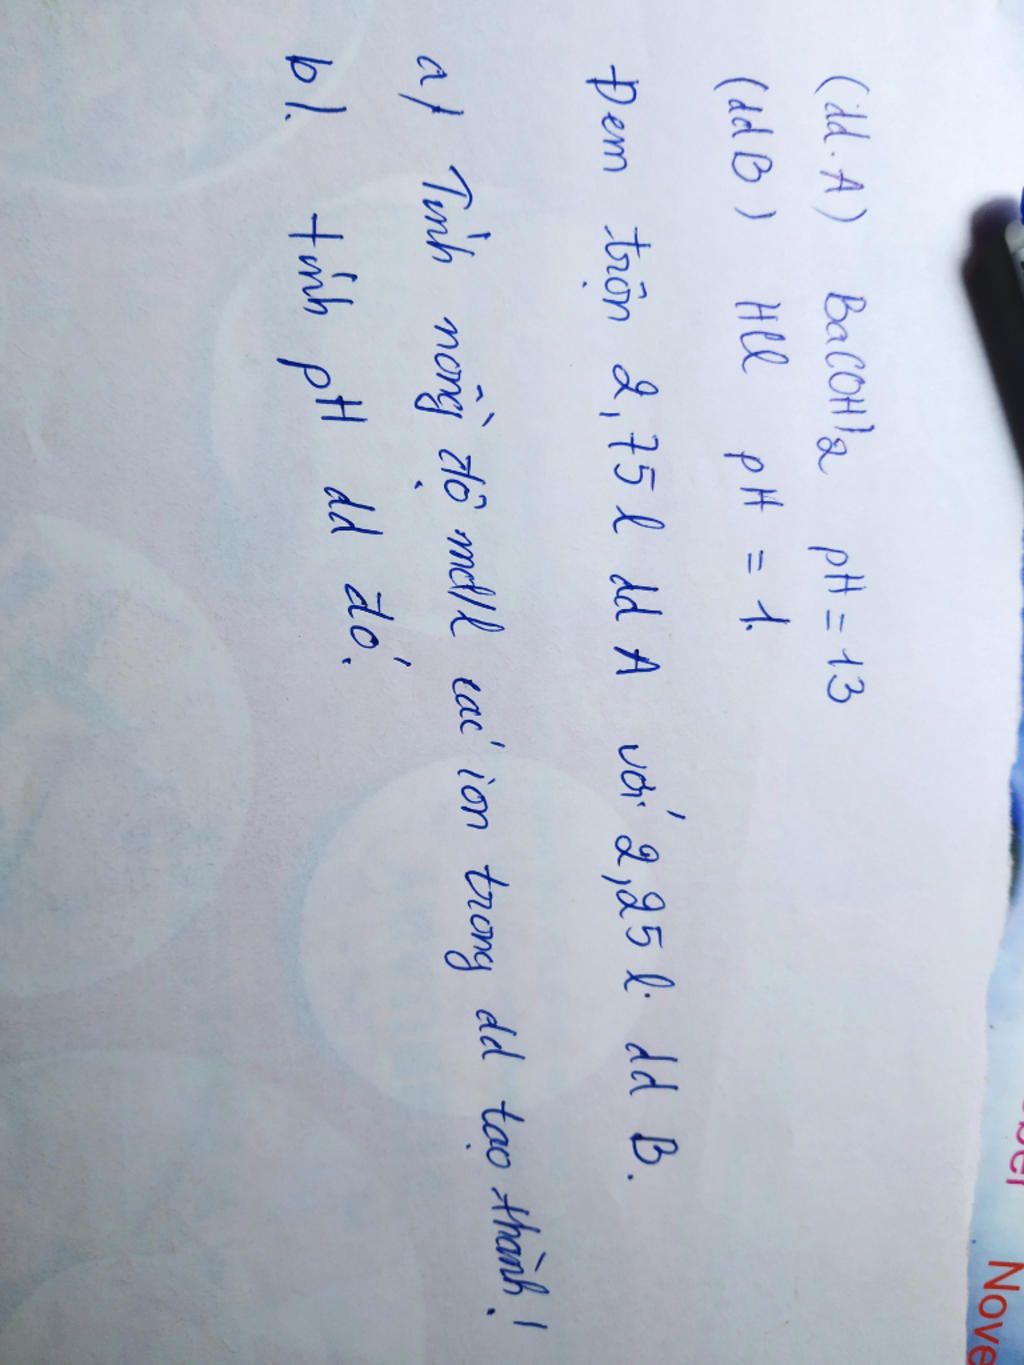 (dd. A) Ba(OH)2 pH = 13
(ddB) HCl pH = 1.
Đem trộn 2,75 l dd A với 2,25 l. dd B.
a) Tính nồng độ mol/l các ion trong dd tạo thành!
b). tính pH dd đó.
Nove